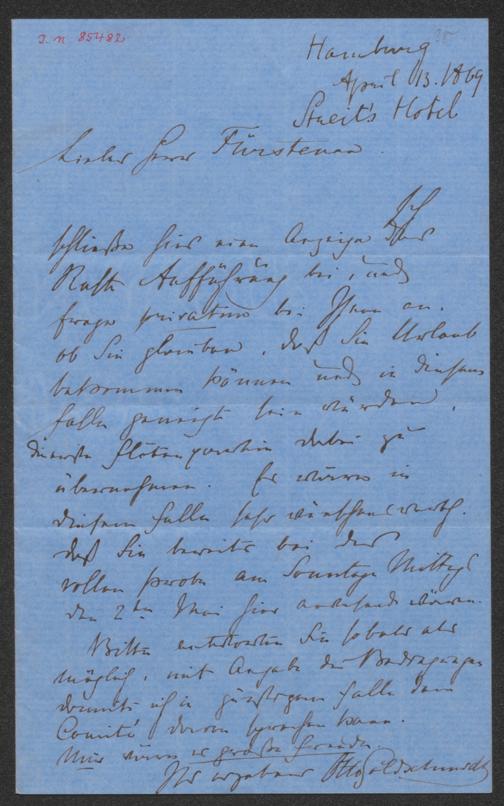 J. N. 85482
Hamburg
April 13. 1869
Streit's Hotel
Lieber Herr Fürstenau.
Ich
schließe hier eine Anzeige der
Ruth Aufführung bei, und
frage privatim bei Ihnen an,
ob Sie glauben, daß Sie Urlaub
bekommen können und in diesem
Falle geneigt sein würden,
die erste Flötenparthie dabei zu
übernehmen. Es wäre in
diesem Falle sehr wünschenswerth,
daß Sie bereits bei der
vollen Probe am Sonntage Mittags
den 2ten Mai hier anwesend wären.
Bitte antworten Sie sobald als
möglich, mit Angabe der Bedingungen
damit ich in günstigem Falle dem
Comité davon sprechen kann.
Mir wäre es große Freude.
Ihr ergebener Otto Goldschmidt